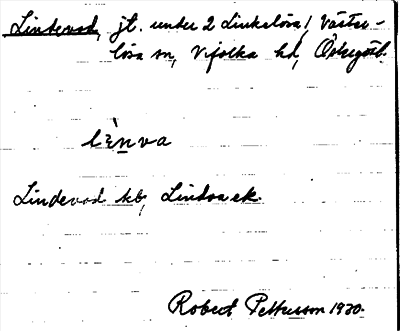 Lindevad, jt. under 2 Linkelösa, Väster-
lösa sn, Vifolka hd, Östergötl.
lènva
Lindevad kb, Lindva ek.
Robert Pettersson 1930.